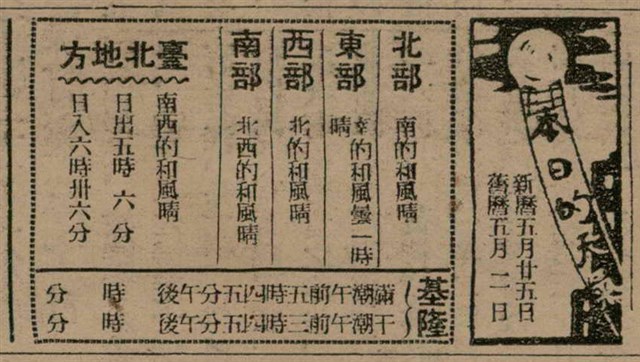 本日的
新曆五月廿五日
舊曆五月二日
北部
南的和風晴
東部
的和風曇一時
晴
西部
北的和風晴
南部
北西的和風晴
臺北地方
南西的和風晴
日出五時 六 分
日入六時卅六分
基隆
滿潮午前五時四五分午後 時 分
干潮午前三時四五分午後 時 分